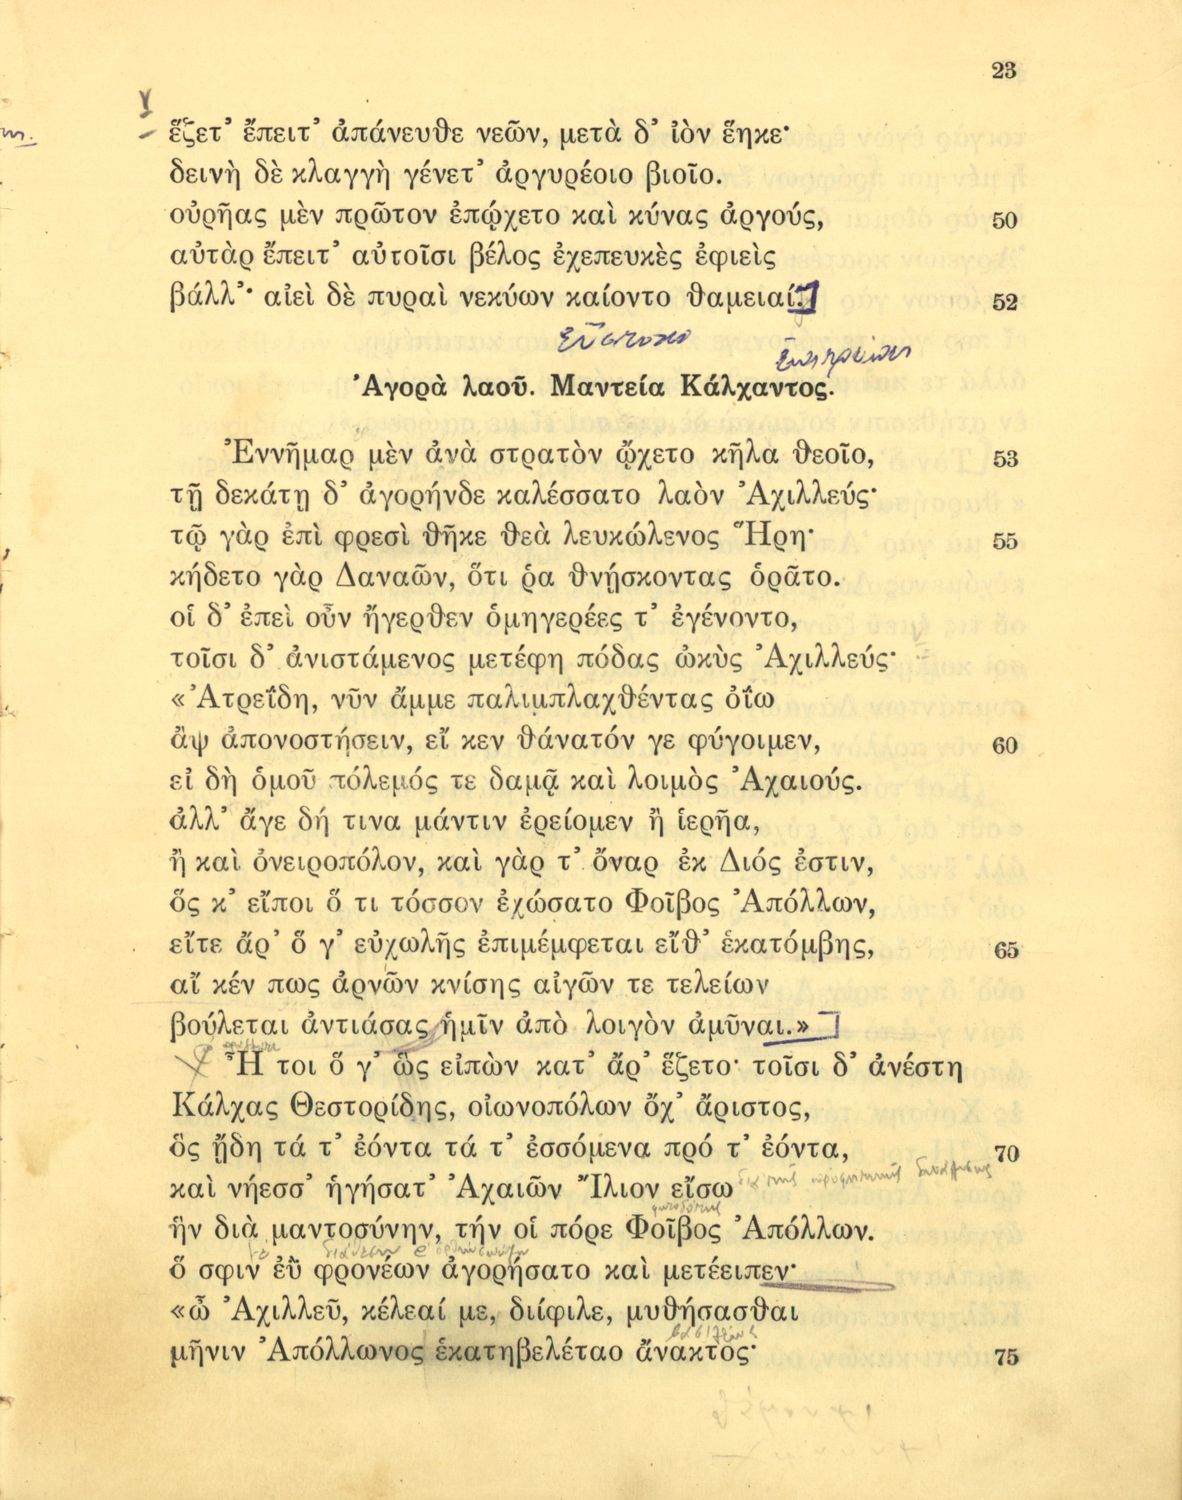 23
ἕζετ’ ἔπειτ’ ἀπάνευθε νεῶν, μετὰ δ’ ἰὸν ἕηκε·
δεινὴ δὲ κλαγγὴ γένετ’ ἀργυρέοιο βιοῖο.
οὐρῆας μὲν πρῶτον ἐπῴχετο καὶ κύνας ἀργούς, 50
αὐτὰρ ἔπειτ’ αὐτοῖσι βέλος ἐχεπευκὲς ἐφιεὶς
βάλλ’· αἰεὶ δὲ πυραὶ νεκύων καίοντο θαμειαί. 52
Ἀγορὰ λαοῦ. Μαντεία Κάλχαντος.
Ἐννῆμαρ μὲν ἀνὰ στρατὸν ᾤχετο κῆλα θεοῖο, 53
τῇ δεκάτῃ δ’ ἀγορήνδε καλέσσατο λαὸν Ἀχιλλεύς·
τῷ γὰρ ἐπὶ φρεσὶ θῆκε θεὰ λευκώλενος Ἥρη· 55
κήδετο γὰρ Δαναῶν, ὅτι ῥα θνῄσκοντας ὁρᾶτο.
οἱ δ’ ἐπεὶ οὖν ἤγερθεν ὁμηγερέες τ’ ἐγένοντο,
τοῖσι δ’ ἀνιστάμενος μετέφη πόδας ὠκὺς Ἀχιλλεύς·
«Ἀτρεΐδη, νῦν ἄμμε παλιμπλαχθέντας ὀΐω
ἂψ ἀπονοστήσειν, εἴ κεν θάνατόν γε φύγοιμεν, 60
εἰ δὴ ὁμοῦ πόλεμός τε δαμᾷ καὶ λοιμὸς Ἀχαιούς.
ἀλλ’ ἄγε δή τινα μάντιν ἐρείομεν ἢ ἱερῆα,
ἢ καὶ ὀνειροπόλον, καὶ γὰρ τ’ ὄναρ ἐκ Διός ἐστιν,
ὅς κ’ εἴποι ὅ τι τόσσον ἐχώσατο Φοῖβος Ἀπόλλων,
εἴτε ἄρ’ ὅ γ’ εὐχωλῆς ἐπιμέμφεται εἴθ’ ἑκατόμβης, 65
αἴ κέν πως ἀρνῶν κνίσης αἰγῶν τε τελείων
βούλεται ἀντιάσας ἡμῖν ἀπὸ λοιγὸν ἀμῦναι.»
Ἦ τοι ὅ γ’ ὣς εἰπὼν κατ’ ἄρ’ ἕζετο· τοῖσι δ’ ἀνέστη
Κάλχας Θεστορίδης, οἰωνοπόλων ὄχ’ ἄριστος,
ὃς ᾔδη τά τ’ ἐόντα τά τ’ ἐσσόμενα πρό τ’ ἐόντα, 70
καὶ νήεσσ’ ἡγήσατ’ Ἀχαιῶν Ἴλιον εἴσω
ἣν διὰ μαντοσύνην, τήν οἱ πόρε Φοῖβος Ἀπόλλων.
ὅ σφιν ἐῢ φρονέων ἀγορήσατο καὶ μετέειπεν·
«ὦ Ἀχιλλεῦ, κέλεαί με, διίφιλε, μυθήσασθαι
μῆνιν Ἀπόλλωνος ἑκατηβελέταο ἄνακτος· 75